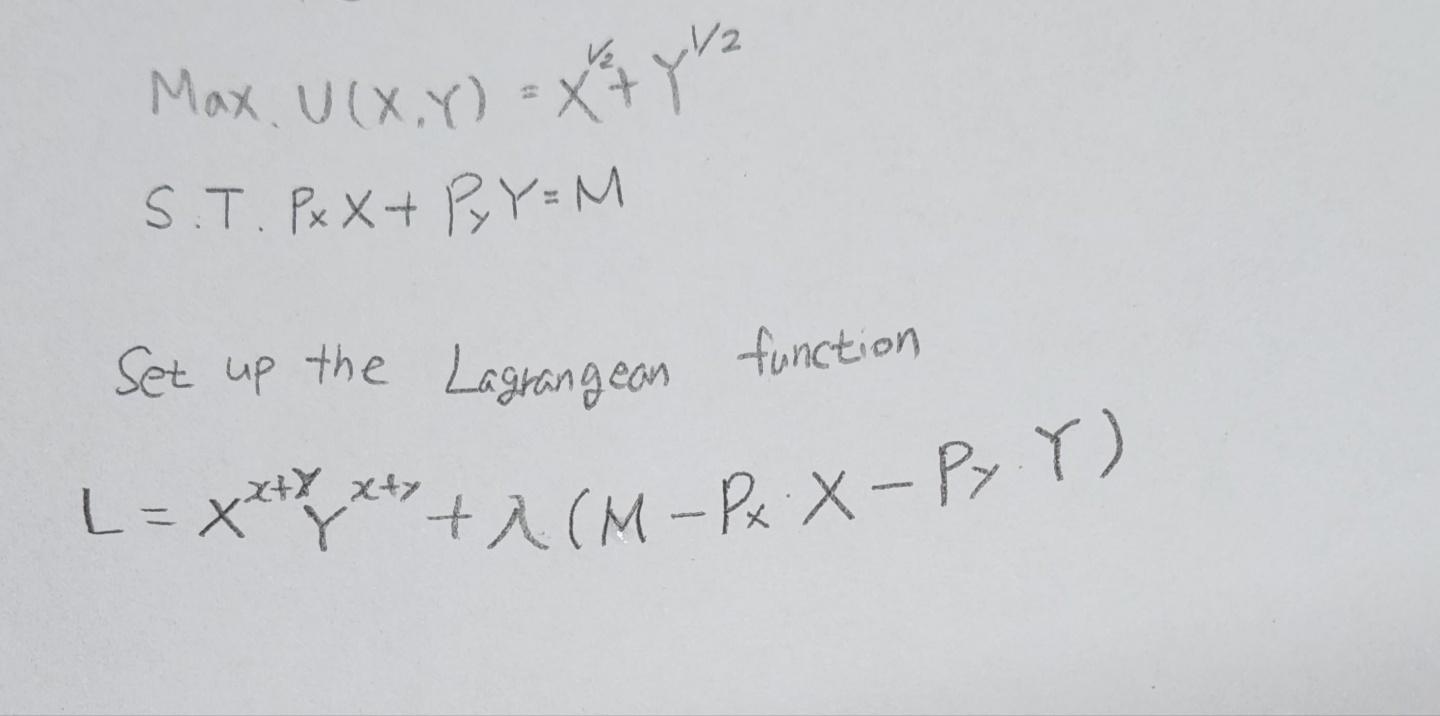 Max. U(X,Y) = X^1/2 + Y^1/2
S.T. PxX + PyY = M
Set up the Lagrangean function
L = X^x+y Y^x+y + λ(M - Px·X - Py·Y)